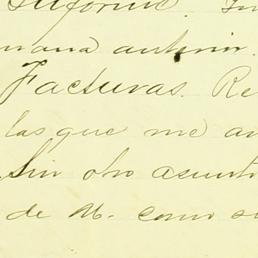 mana anterior.
Facturas. Re
las que me a
Sin otro asunto
de U. como s